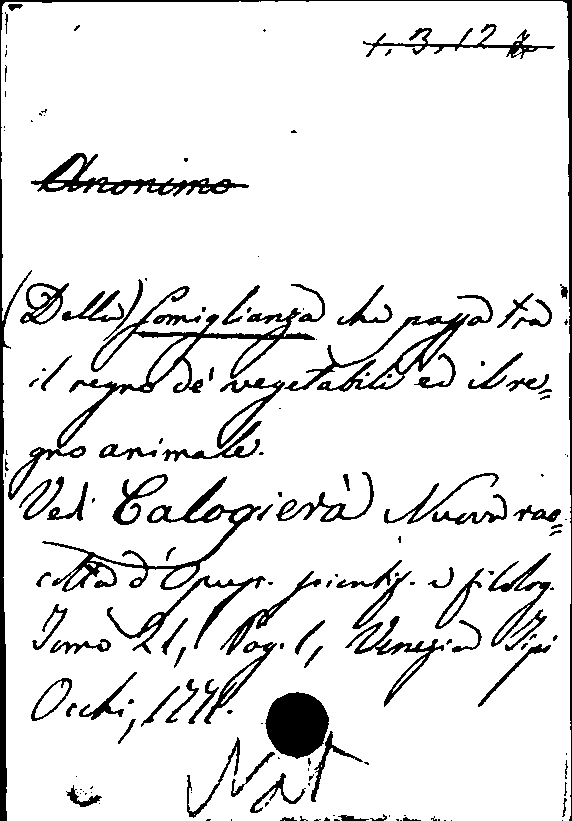 1. 3. 12
Anonimo
(Della) Somiglianza che passa tra
il regno de' vegetabili ed il re=
gno animale.
Vedi Calogierà Nuova rac=
colta d'Opusc. scientif. e filolog.
Tomo 21, Pag. 1, Venezia Tipi
Occhi, 1771.
Nat